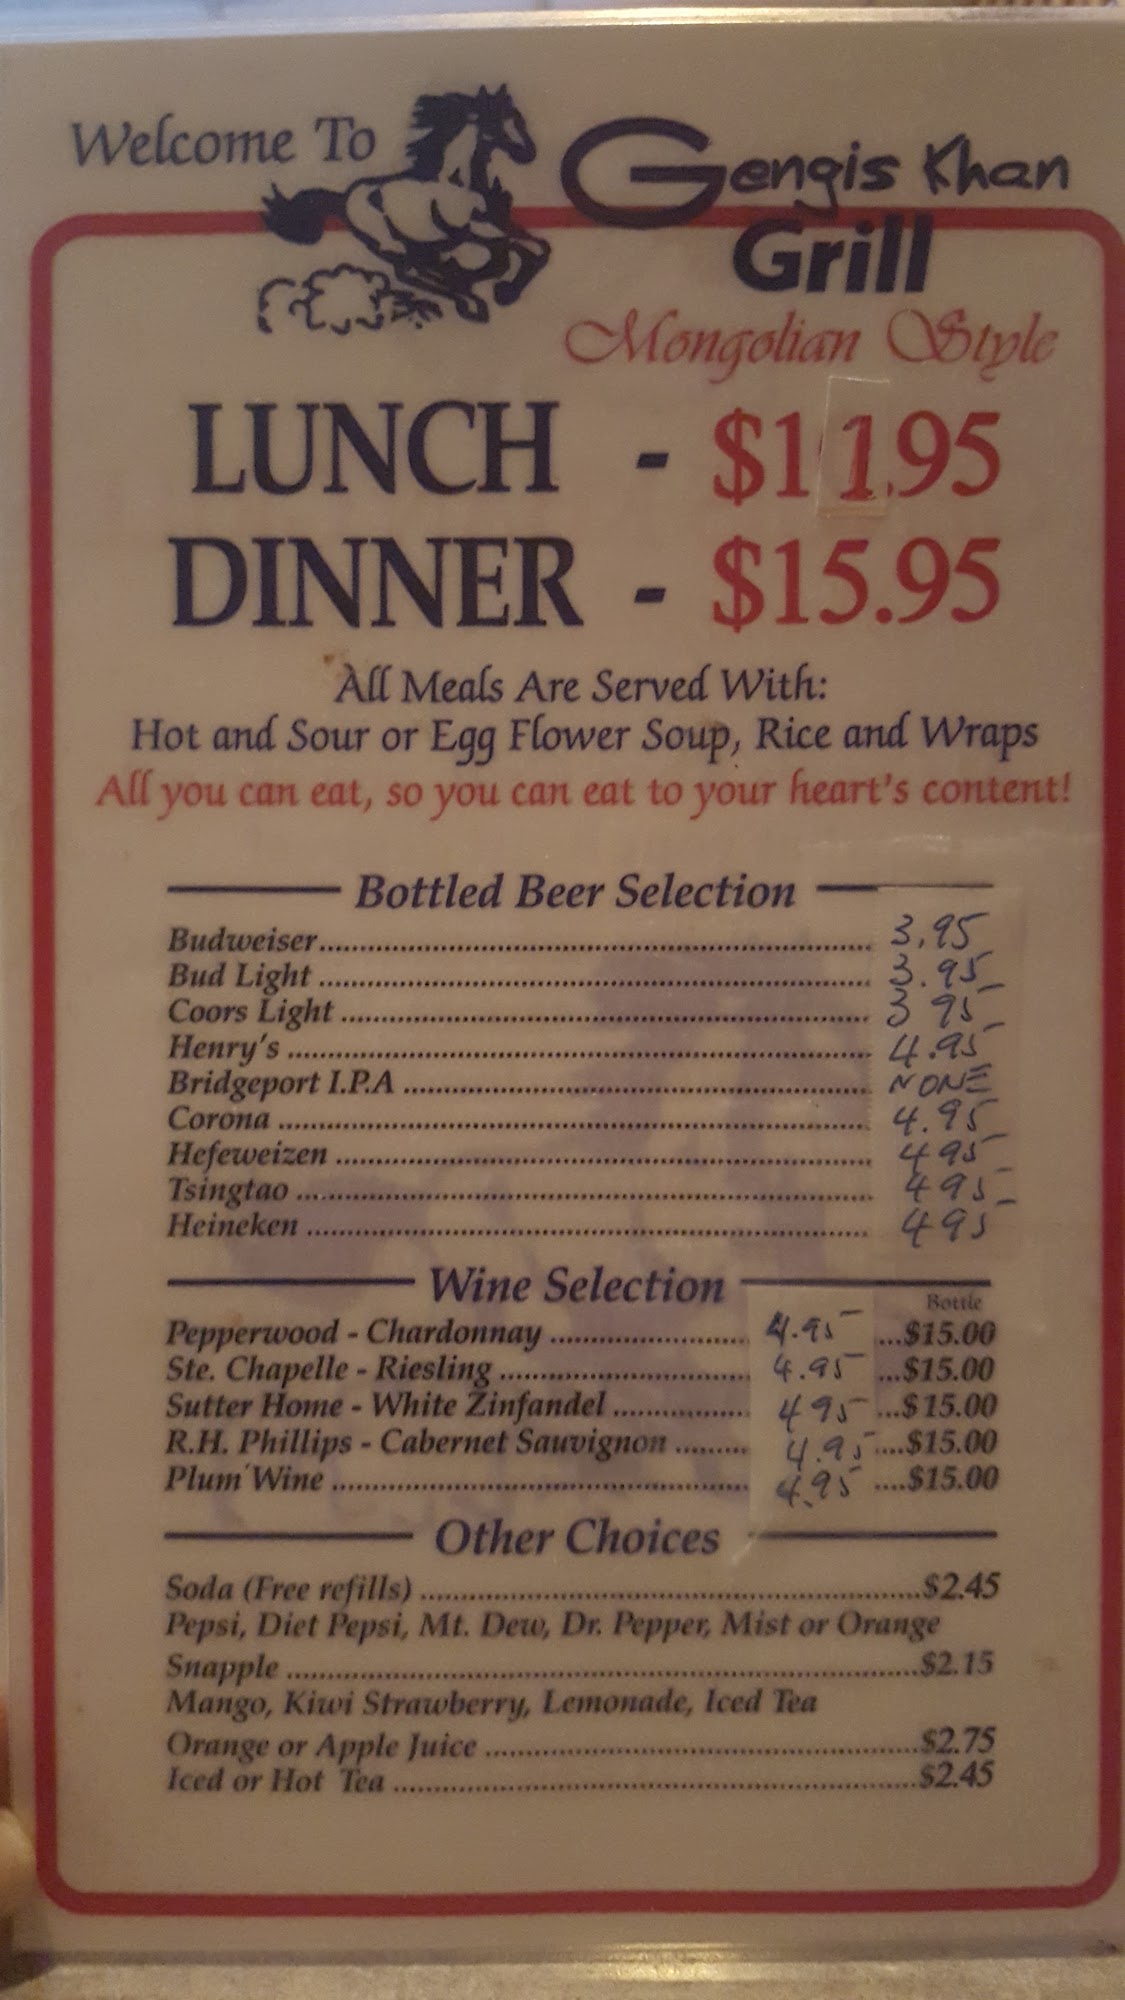 Welcome To Gengis Khan
Grill
Mongolian Style
LUNCH - $11.95
DINNER - $15.95
All Meals Are Served With:
Hot and Sour or Egg Flower Soup, Rice and Wraps
All you can eat, so you can eat to your heart's content!
Bottled Beer Selection
Budweiser........ 3.95
Bud Light ........ 3.95
Coors Light ........ 3 95
Henry's ........ 4.95
Bridgeport I.P.A ........ NONE
Corona ........ 4.95
Hefeweizen ........ 4 95
Tsingtao ........ 4 95
Heineken ........ 4 95
Wine Selection
Bottle
Pepperwood - Chardonnay ........ 4.95 ...$15.00
Ste. Chapelle - Riesling ........ 4.95 ...$15.00
Sutter Home - White Zinfandel ........ 4 95 ...$15.00
R.H. Phillips - Cabernet Sauvignon ........ 4.95 ....$15.00
Plum Wine ........ 4.95 ....$15.00
Other Choices
Soda (Free refills) ........$2.45
Pepsi, Diet Pepsi, Mt. Dew, Dr. Pepper, Mist or Orange
Snapple ........$2.15
Mango, Kiwi Strawberry, Lemonade, Iced Tea
Orange or Apple Juice ........$2.75
Iced or Hot Tea ........$2.45